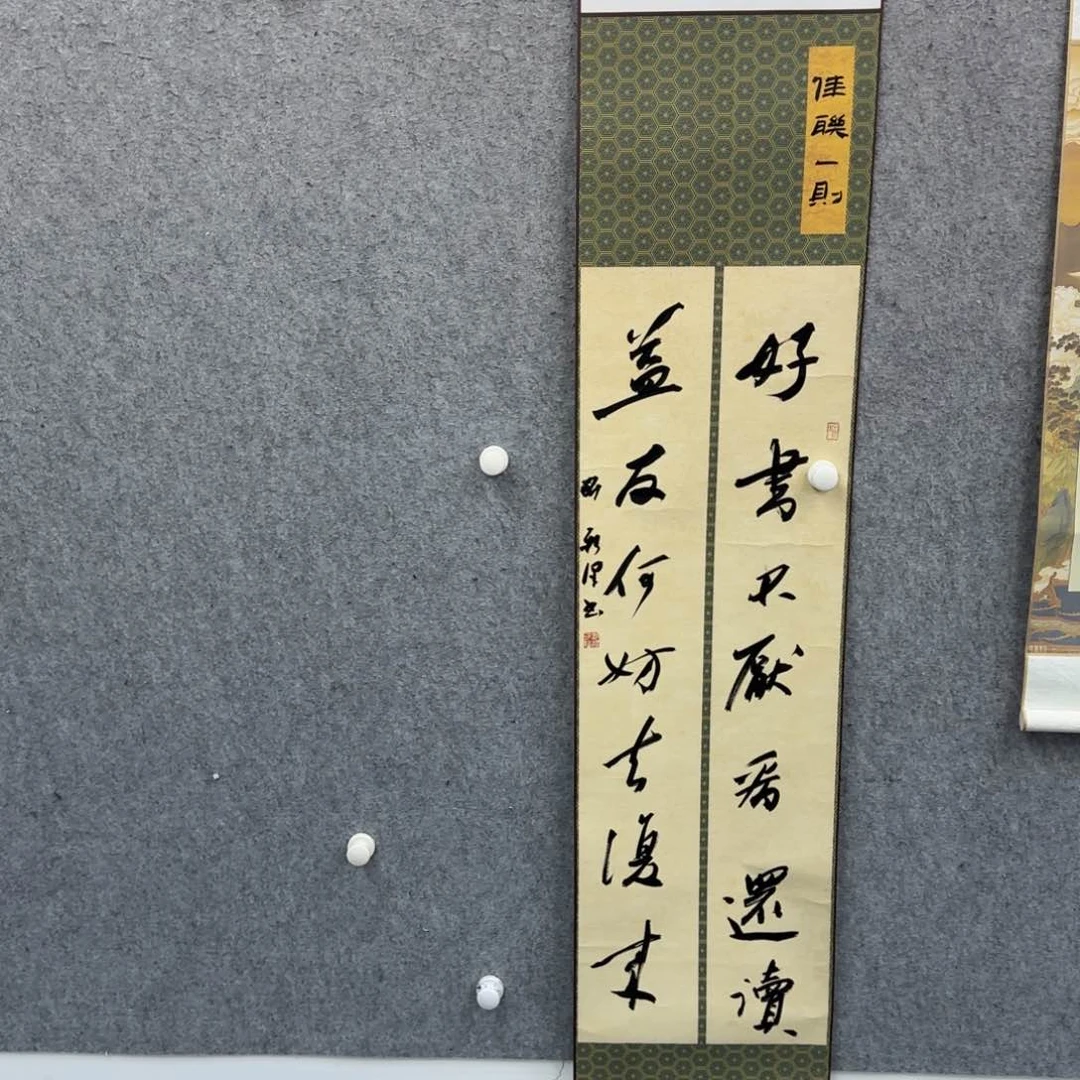 佳聯一則
好書不厭看還讀
益友何妨去復來